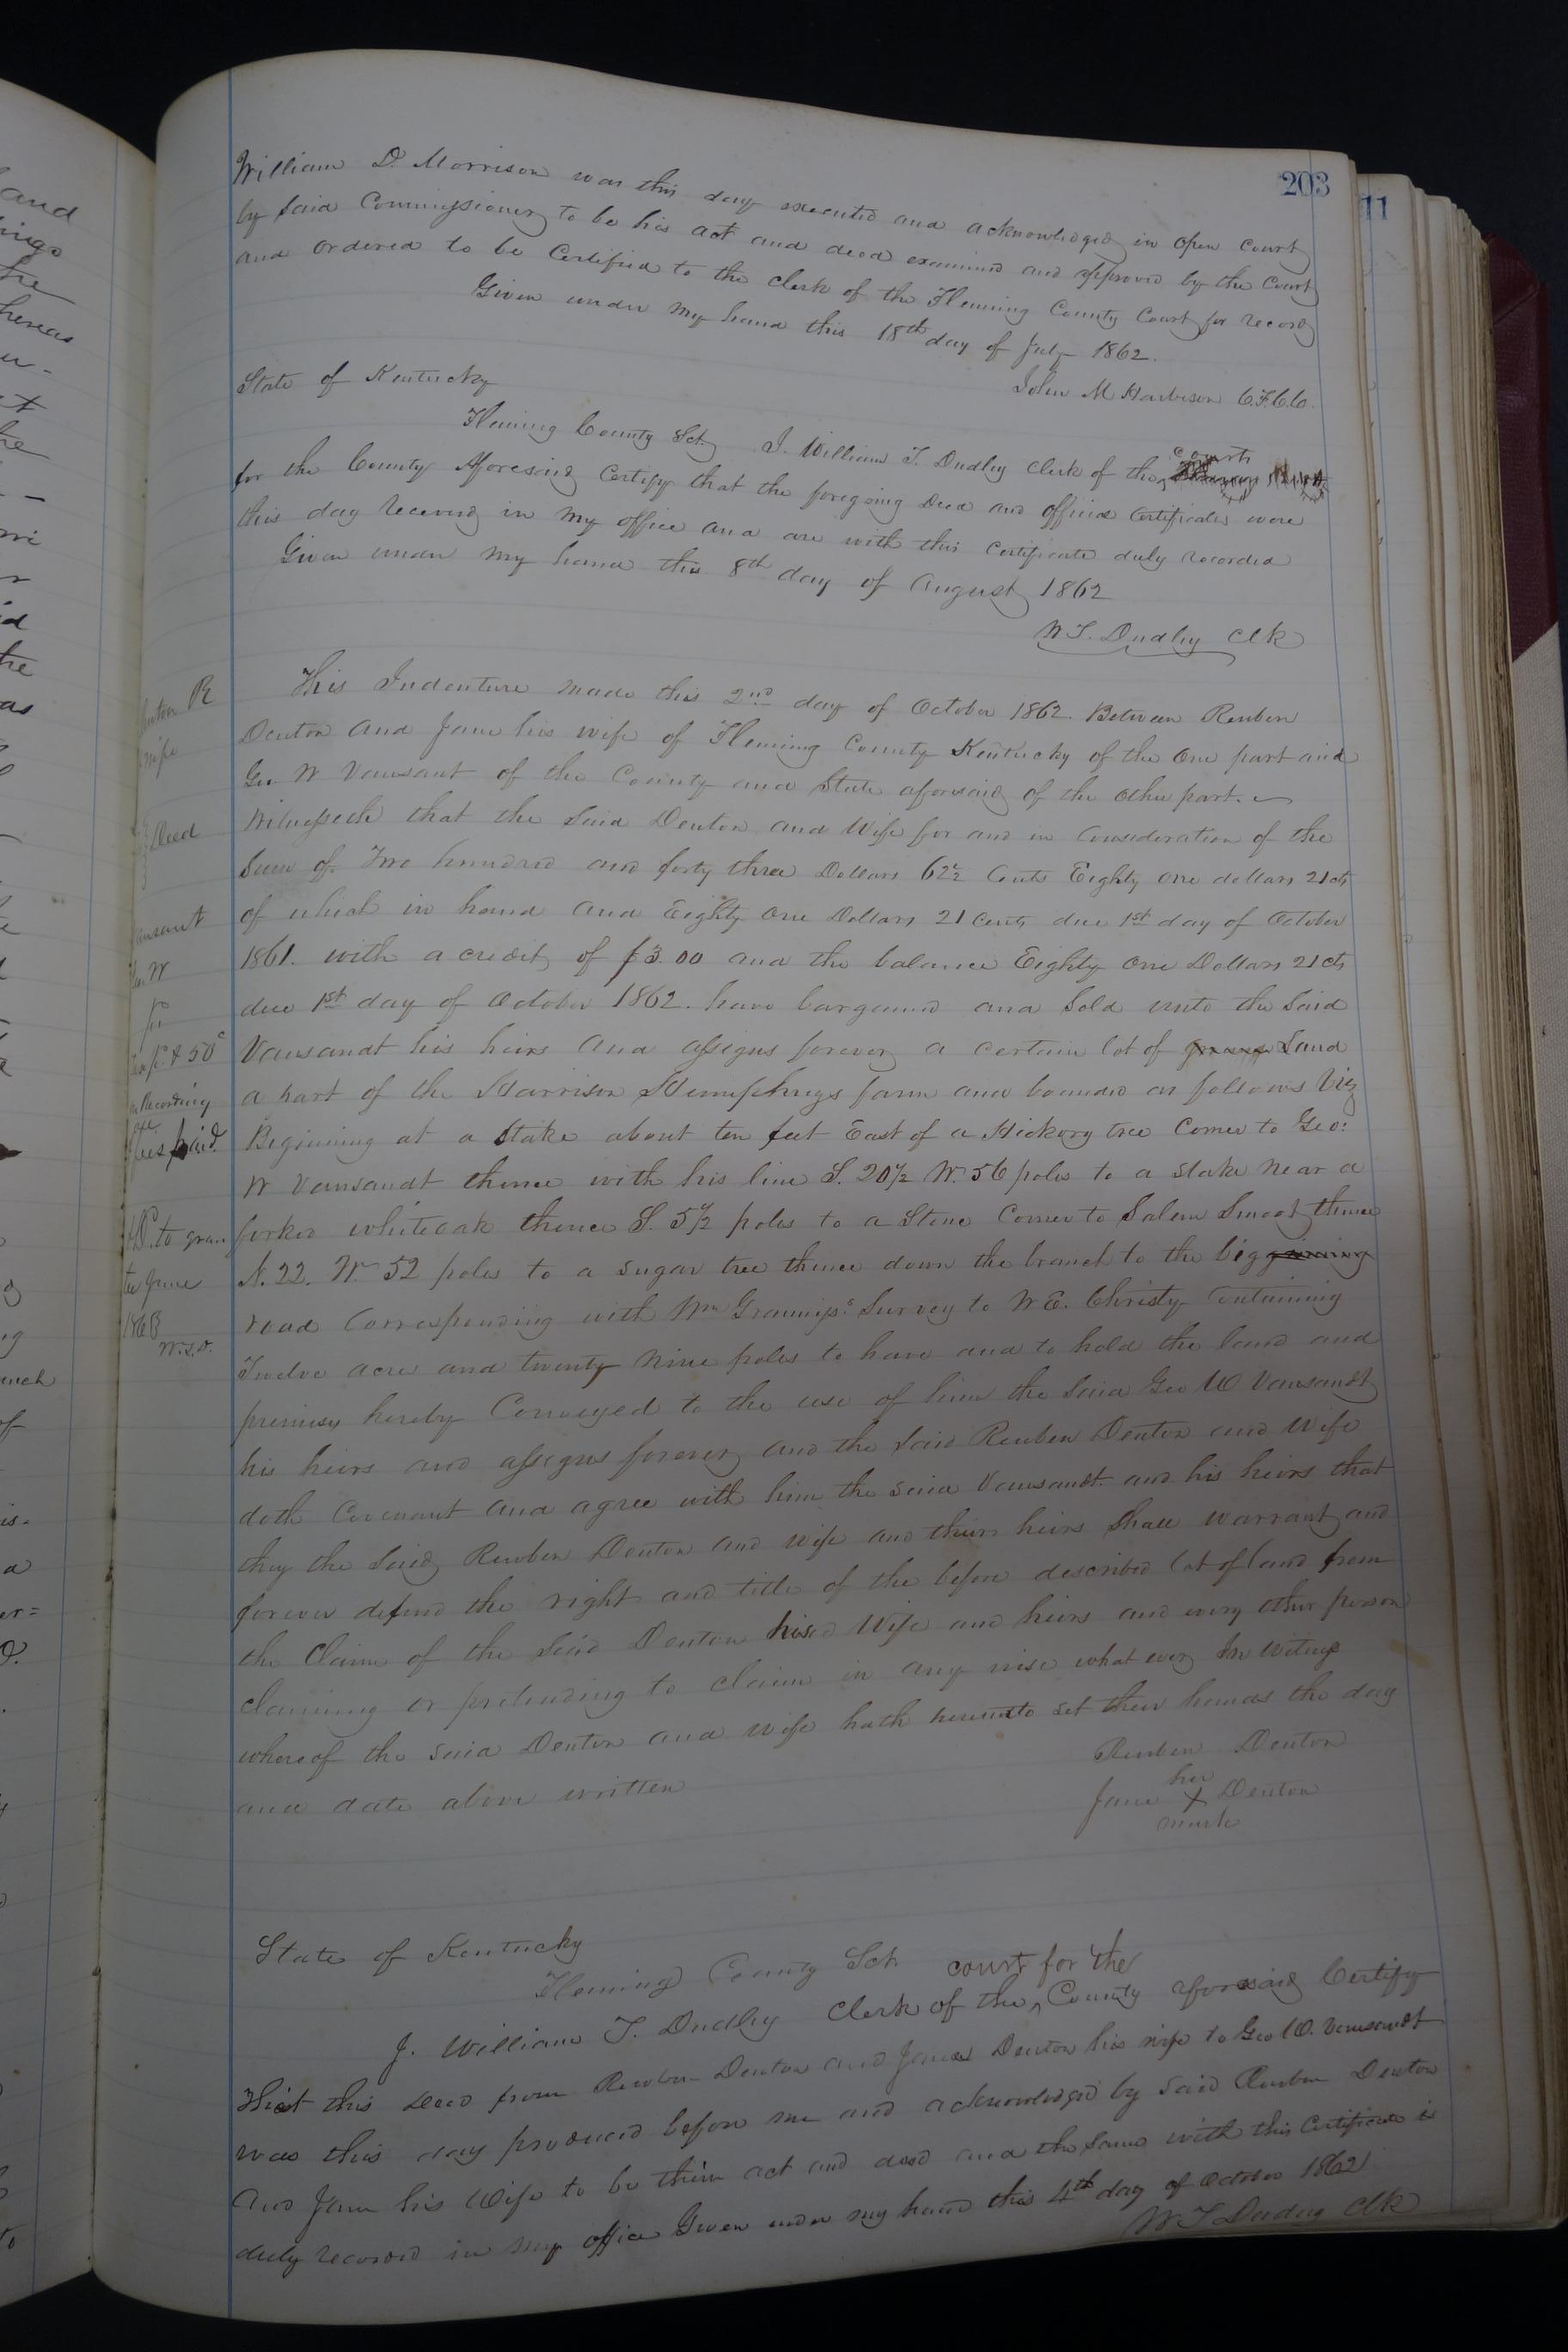 203
11
William D. Morrison was this day executed and acknowledged in open court
by said Commissioner to be his act and deed examined and approved by the Court
and ordered to be Certified to the clerk of the Fleming County Court for record
Given under my hand this 18th day of July 1862.
John M Harbeson C.F.C.C.
State of Kentucky
Fleming County Sct. I. William T. Dudley Clerk of the court
for the County Aforesaid Certify that the foregoing Deed and official certificates were
this day received in my office and are with this certificate duly recorded
Given under my hand this 8th day of August 1862
W.T. Dudley Clk
This Indenture made this 2nd day of October 1862. Between Reuben
Denton and Jane his wife of Fleming County Kentucky of the one part and
Geo W Vansant of the County and State aforesaid of the other part.
Witnesseth that the said Denton and Wife for and in consideration of the
Sum of Two hundred and forty three Dollars 62½ Cents Eighty one dollars 21cts
of which in hand and Eighty One Dollars 21 cents due 1st day of October
1861. with a credit of $3.00 and the balance Eighty One Dollars 21cts
due 1st day of October 1862. have bargained and Sold unto the Said
Vansandt his heirs and assigns forever a certain lot of Land
a part of the Harrison Humphreys farm and bounded as follows Viz
Begining at a Stake about ten feet East of a Hickory tree Corner to Geo:
W Vansandt thence with his line S. 20½ W. 56 poles to a stake near a
forked whiteoak thence S. 5½ poles to a Stone Corner to Salem Smoot thence
N. 22. W. 52 poles to a sugar tree thence down the branch to the big
road Corresponding with Wm Grannis's Survey to W E. Christy Containing
Twelve acre and twenty nine poles to have and to hold the land and
premises hereby Conveyed to the use of him the said Geo W Vansandt
his heirs and assigns forever and the said Reuben Denton and Wife
doth Covenant and agree with him the said Vansandt and his heirs that
they the Said Reuben Denton and wife and their heirs Shall warrant and
forever defend the right and title of the before described lot of land from
the Claim of the Said Denton his Wife and heirs and every other person
claiming or pretending to claim in any wise what ever In Witness
whereof the said Denton and Wife hath hereunto set their hands the day
and date above written
Reuben Denton
her
Jane X Denton
mark
Denton R
wife
Deed
Vansant
Geo W
for
50c
Recording
fees paid.
to gran
tee June
186
W.T.D.
State of Kentucky
Fleming County Sct court for the
I. William T. Dudley Clerk of the County aforesaid Certify
That this Deed from Reuben Denton and Jane Denton his wife to Geo W. Vansandt
was this day produced before me and acknowledged by said Reuben Denton
and Jane his Wife to be their act and deed and the same with this Certificate is
duly recorded in my office Given under my hand this 4th day of October 1862
W T Dudley Clk